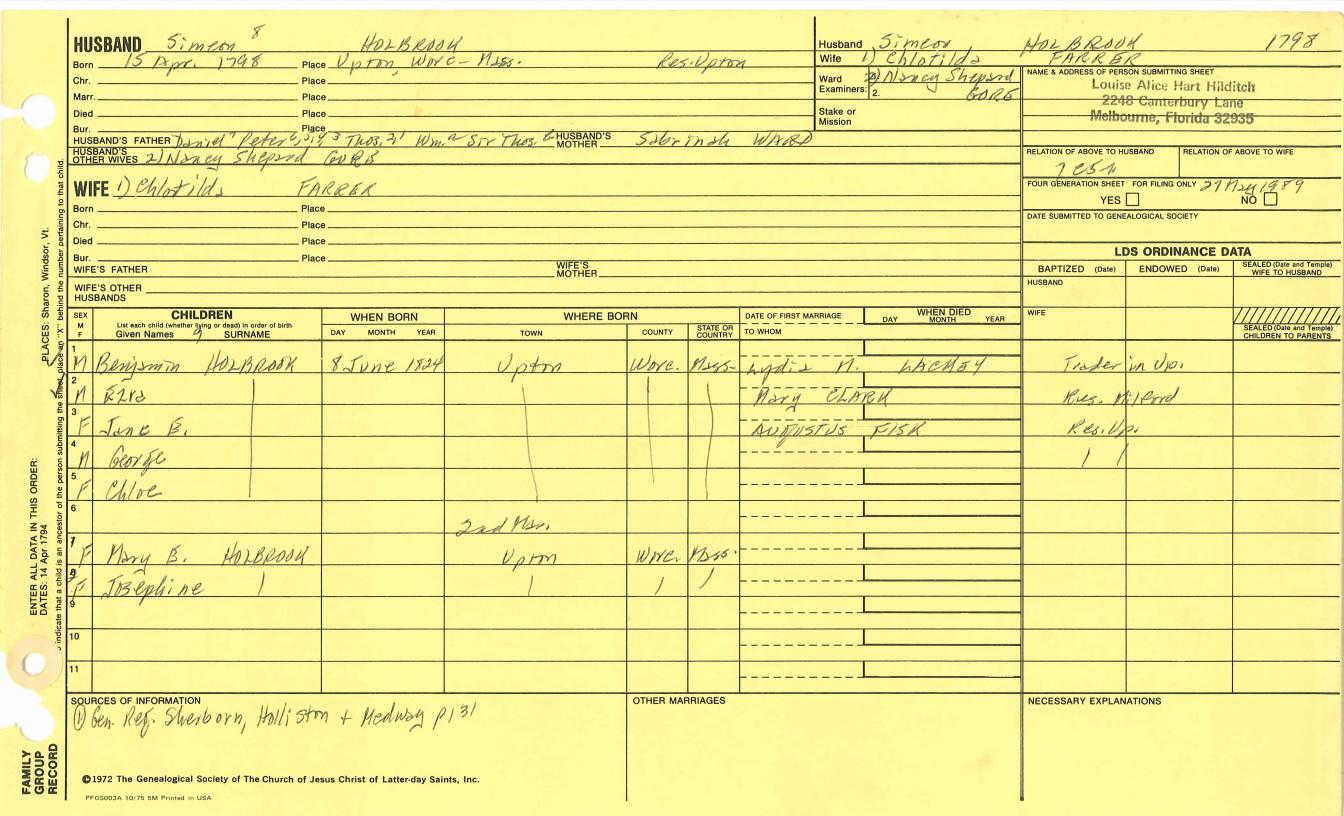 HUSBAND Simeon 8 HOLBROOK
Born 15 Apr. 1798 Place Upton, Worc- Mass. Res. Upton
Chr. Place
Marr. Place
Died Place
Bur. Place
HUSBAND'S FATHER Daniel 7 Peter HUSBAND'S MOTHER Sabrinah WARD
HUSBAND'S OTHER WIVES 2) Nancy Shepard GORE
WIFE 1) Chlotilda FARRER
Born Place
Chr. Place
Died Place
Bur. Place
WIFE'S FATHER WIFE'S MOTHER
WIFE'S OTHER HUSBANDS
Husband Simeon HOLBROOK 1798
Wife 1) Chlotilda FARRER
Ward 2) Nancy Shepard
Examiners: 2. GORE
Stake or Mission
NAME & ADDRESS OF PERSON SUBMITTING SHEET
Louise Alice Hart Hilditch
2248 Canterbury Lane
Melbourne, Florida 32935
RELATION OF ABOVE TO HUSBAND RELATION OF ABOVE TO WIFE
FOUR GENERATION SHEET FOR FILING ONLY 27 May 1989
YES NO
DATE SUBMITTED TO GENEALOGICAL SOCIETY
LDS ORDINANCE DATA
BAPTIZED (Date) ENDOWED (Date) SEALED (Date and Temple) WIFE TO HUSBAND
HUSBAND
WIFE
SEALED (Date and Temple) CHILDREN TO PARENTS
SEX M F CHILDREN WHEN BORN WHERE BORN DATE OF FIRST MARRIAGE WHEN DIED
List each child (whether living or dead) in order of birth
Given Names 9 SURNAME DAY MONTH YEAR TOWN COUNTY STATE OR COUNTRY TO WHOM DAY MONTH YEAR
1 M Benjamin HOLBROOK 8 June 1824 Upton Worc. Mass- Lydia M. LACKEY Trader in Up.
2 M Ezra Mary CLARK Res. Milford
3 F Jane E. AUGUSTUS FISK Res. Up.
4 M George
5 F Chloe
6 2nd Mar.
7 F Mary E. HOLBROOK Upton Worc. Mass.
8 F Josephine
9
10
11
SOURCES OF INFORMATION OTHER MARRIAGES NECESSARY EXPLANATIONS
① Gen. Reg. Sherborn, Holliston + Medway p131
©1972 The Genealogical Society of The Church of Jesus Christ of Latter-day Saints, Inc.
PFGS003A 10/75 5M Printed in USA
FAMILY GROUP RECORD
ENTER ALL DATA IN THIS ORDER:
DATES: 14 Apr 1794
PLACES: Sharon, Windsor, Vt.
indicate that a child is an ancestor of the person submitting the sheet, place an "X" behind the number pertaining to that child.